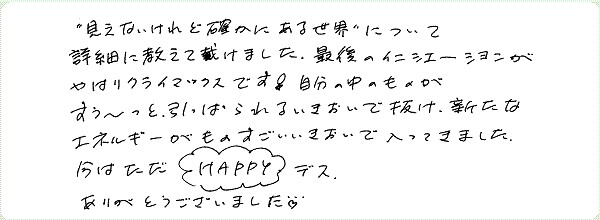 "見えないけれど確かにある世界"について
詳細に教えて戴けました。最後のイニシエーションが
やはりクライマックスです!自分の中のものが
すぅ〜っと、引っぱられるいきおいで抜け、新たな
エネルギーがものすごいいきおいで入ってきました。
今はただ HAPPY デス。
ありがとうございました